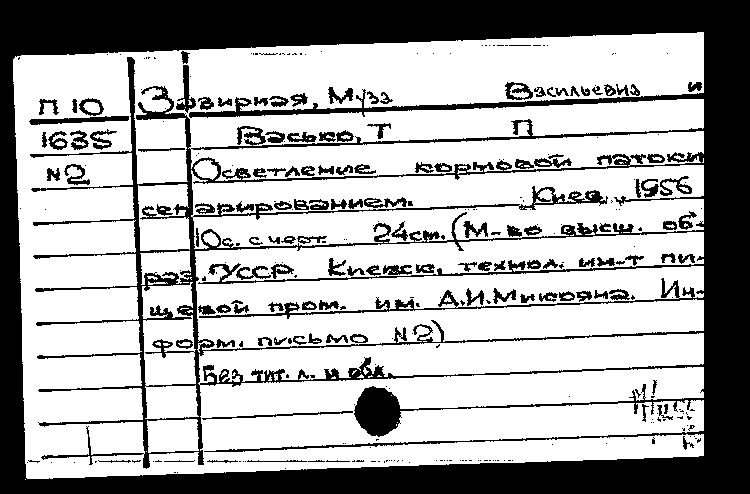 П 10 Завирная, Муза Васильевна и
1635 Васько, Т П
N2 Осветление кормовой патоки
сепарированием. Киев, 1956
10с. с черт. 24см. (М-во высш. об-
раз. УССР. Киевск. технол. ин-т пи-
щевой пром. им. А.И.Микояна. Ин-
форм. письмо N2)
Без тит. л. и обл.